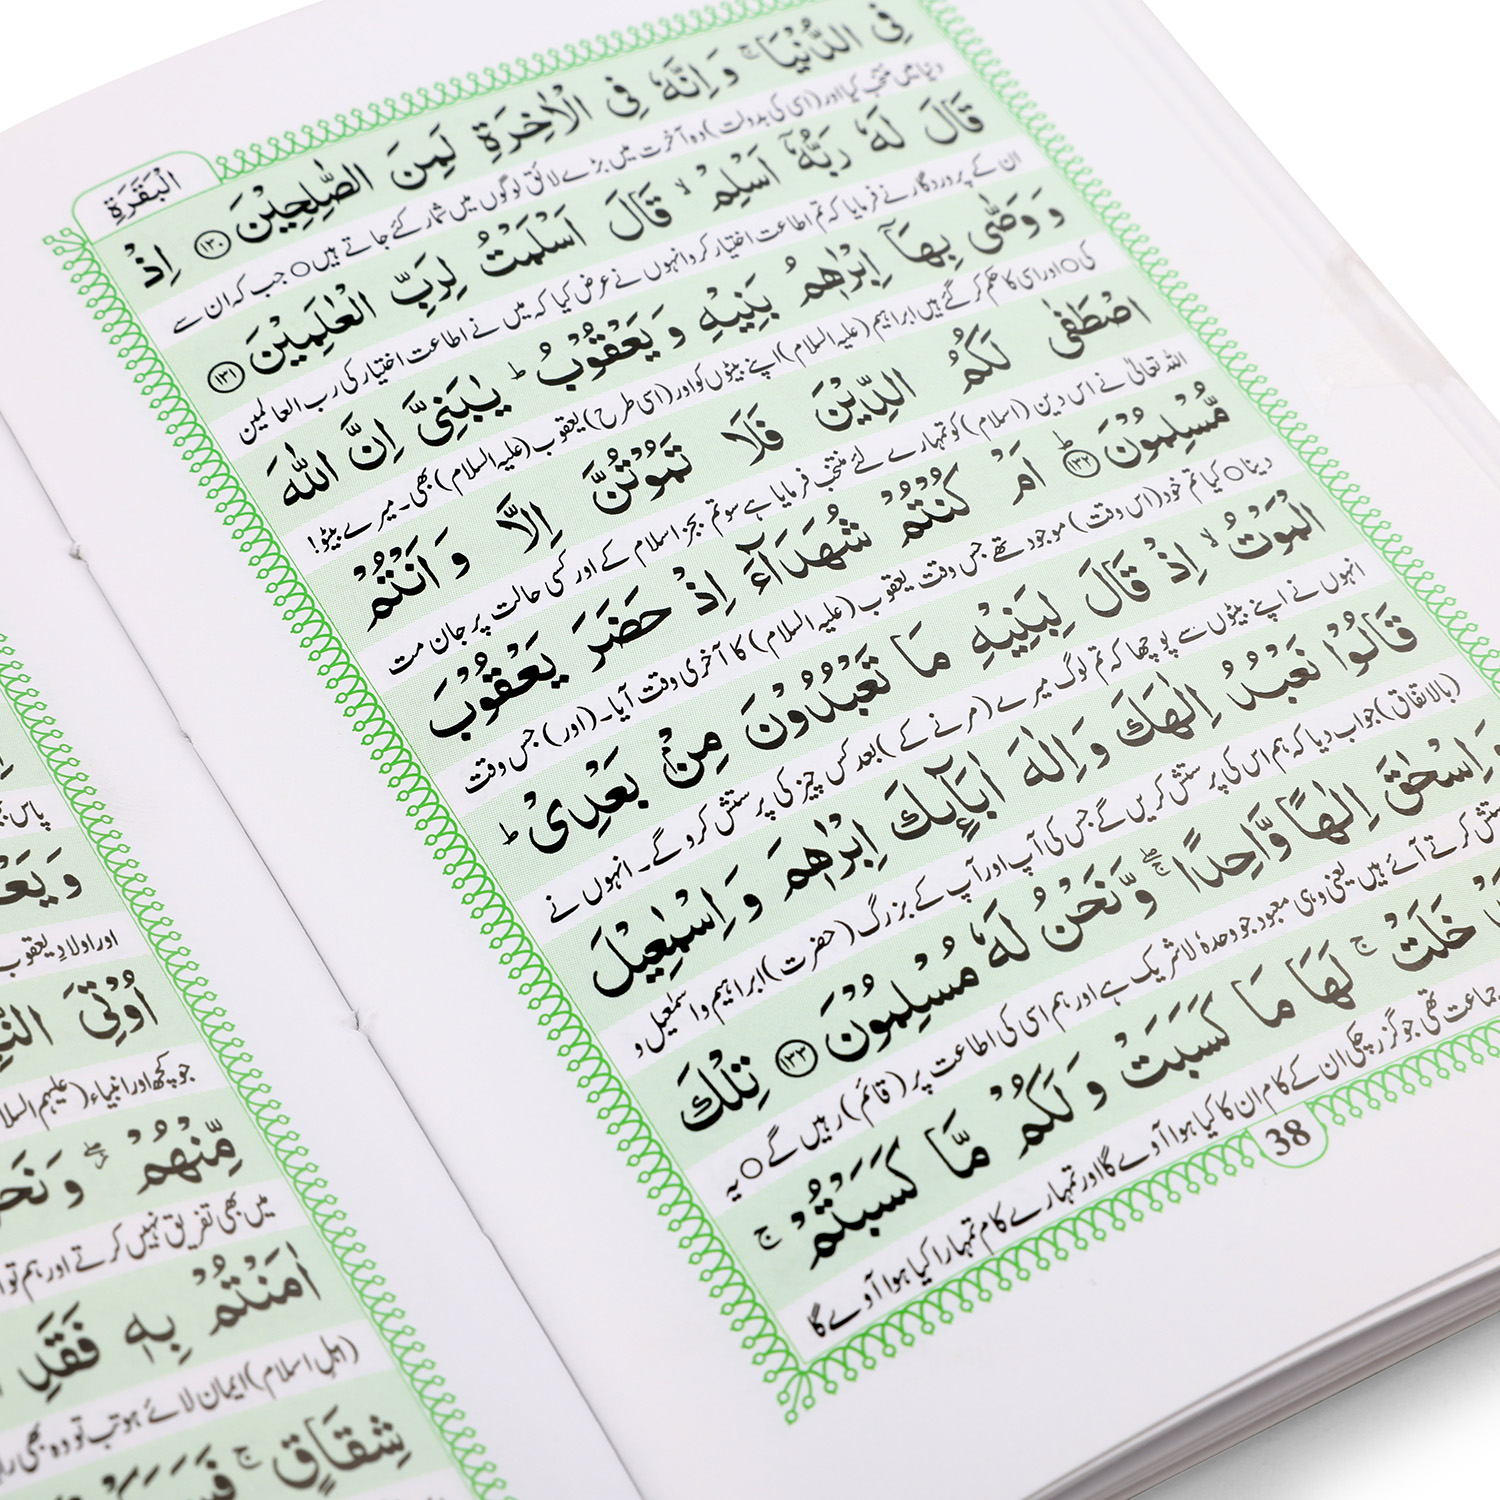 الْبَقَرَةِ
فِي الدُّنْيَا ۚ وَاِنَّهٗ فِي الْاٰخِرَةِ لَمِنَ الصّٰلِحِيْنَ ۝١٣٠ اِذْ
دنیا میں منتخب کیا اور (اسی کی بدولت) وہ آخرت میں بڑے لائق لوگوں میں شمار کئے جاتے ہیں ○ جب کہ ان سے
قَالَ لَهٗ رَبُّهٗٓ اَسْلِمْ ۙ قَالَ اَسْلَمْتُ لِرَبِّ الْعٰلَمِيْنَ ۝١٣١
ان کے پروردگار نے فرمایا کہ تم اطاعت اختیار کرو انہوں نے عرض کیا کہ میں نے اطاعت اختیار کی رب العالمین
وَوَصّٰى بِهَآ اِبْرٰهٖمُ بَنِيْهِ وَيَعْقُوْبُ ؕ يٰبَنِيَّ اِنَّ اللّٰهَ
کی ○ اور اسی کا حکم کر گئے ہیں ابراہیم (علیہ السلام) اپنے بیٹوں کو اور (اسی طرح) یعقوب (علیہ السلام) بھی۔ میرے بیٹو!
اصْطَفٰى لَكُمُ الدِّيْنَ فَلَا تَمُوْتُنَّ اِلَّا وَاَنْتُمْ
اللہ تعالیٰ نے اس دین (اسلام) کو تمہارے لئے منتخب فرمایا ہے سو تم بجز اسلام کے اور کسی حالت پر جان مت
مُّسْلِمُوْنَ ۝١٣٢ؕ اَمْ كُنْتُمْ شُهَدَآءَ اِذْ حَضَرَ يَعْقُوْبَ
دینا ○ کیا تم خود (اس وقت) موجود تھے جس وقت یعقوب (علیہ السلام) کا آخری وقت آیا۔ (اور) جس وقت
الْمَوْتُ ۙ اِذْ قَالَ لِبَنِيْهِ مَا تَعْبُدُوْنَ مِنْۢ بَعْدِيْ ؕ
انہوں نے اپنے بیٹوں سے پوچھا کہ تم لوگ میرے (مرنے کے) بعد کس چیز کی پرستش کرو گے۔ انہوں نے
قَالُوْا نَعْبُدُ اِلٰهَكَ وَاِلٰهَ اٰبَآىِٕكَ اِبْرٰهٖمَ وَاِسْمٰعِيْلَ
(بالاتفاق) جواب دیا کہ ہم اس کی پرستش کریں گے جس کی آپ اور آپ کے بزرگ (حضرت) ابراہیم و اسمٰعیل و
وَاِسْحٰقَ اِلٰهًا وَّاحِدًا ۖۚ وَّنَحْنُ لَهٗ مُسْلِمُوْنَ ۝١٣٣ تِلْكَ
کرتے آئے ہیں یعنی وہی معبود جو وحدہٗ لاشریک ہے اور ہم اسی کی اطاعت پر (قائم) رہیں گے ○ یہ
خَلَتْ ۚ لَهَا مَا كَسَبَتْ وَلَكُمْ مَّا كَسَبْتُمْ ۚ
جماعت تھی جو گزر چکی ان کے کام ان کا کیا ہوا آوے گا اور تمہارے کام تمہارا کیا ہوا آوے گا
38
پاس
اور اولادِ یعقوب
اُوْتِيَ
جو کچھ اور انبیاء (علیہم السلا
مِّنْهُمْ ۖ
میں بھی تفریق نہیں کرتے اور ہم تو
اٰمَنْتُمْ بِهٖ فَقَدِ
(اہلِ اسلام) ایمان لائے ہو تب تو وہ بھی
شِقَاقٍ ۚ